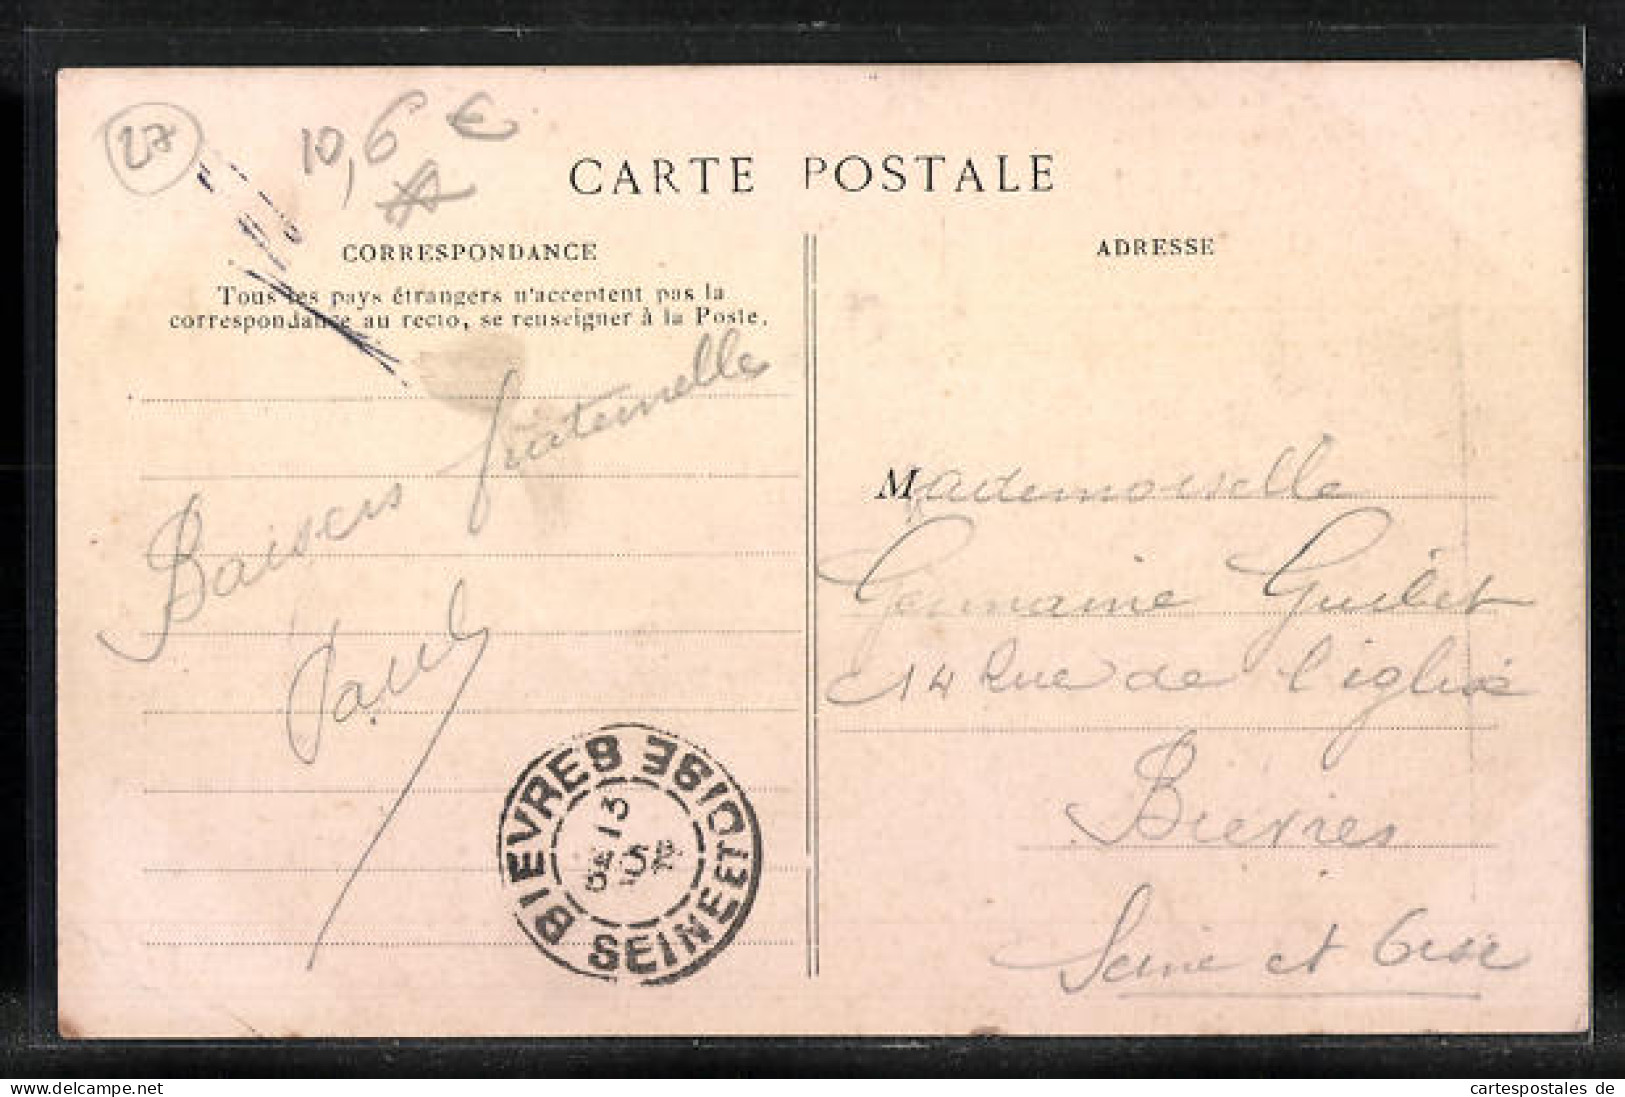 27
10,6 €
CARTE POSTALE
CORRESPONDANCE
Tous les pays étrangers n'acceptent pas la
correspondance au recto, se renseigner à la Poste.
Baisers fraternelle
Paul
BIÈVRES SEINE ET OISE
13
ADRESSE
Mademoiselle
Germaine Guibet
14 Rue de l'iglise
Bièvres
Seine et Oise
cartespostales de